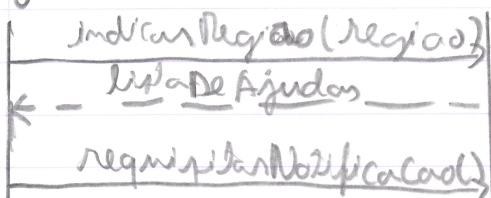 indicarRegiao(regiao)
listaDeAjudas
requisitarNotificacao()